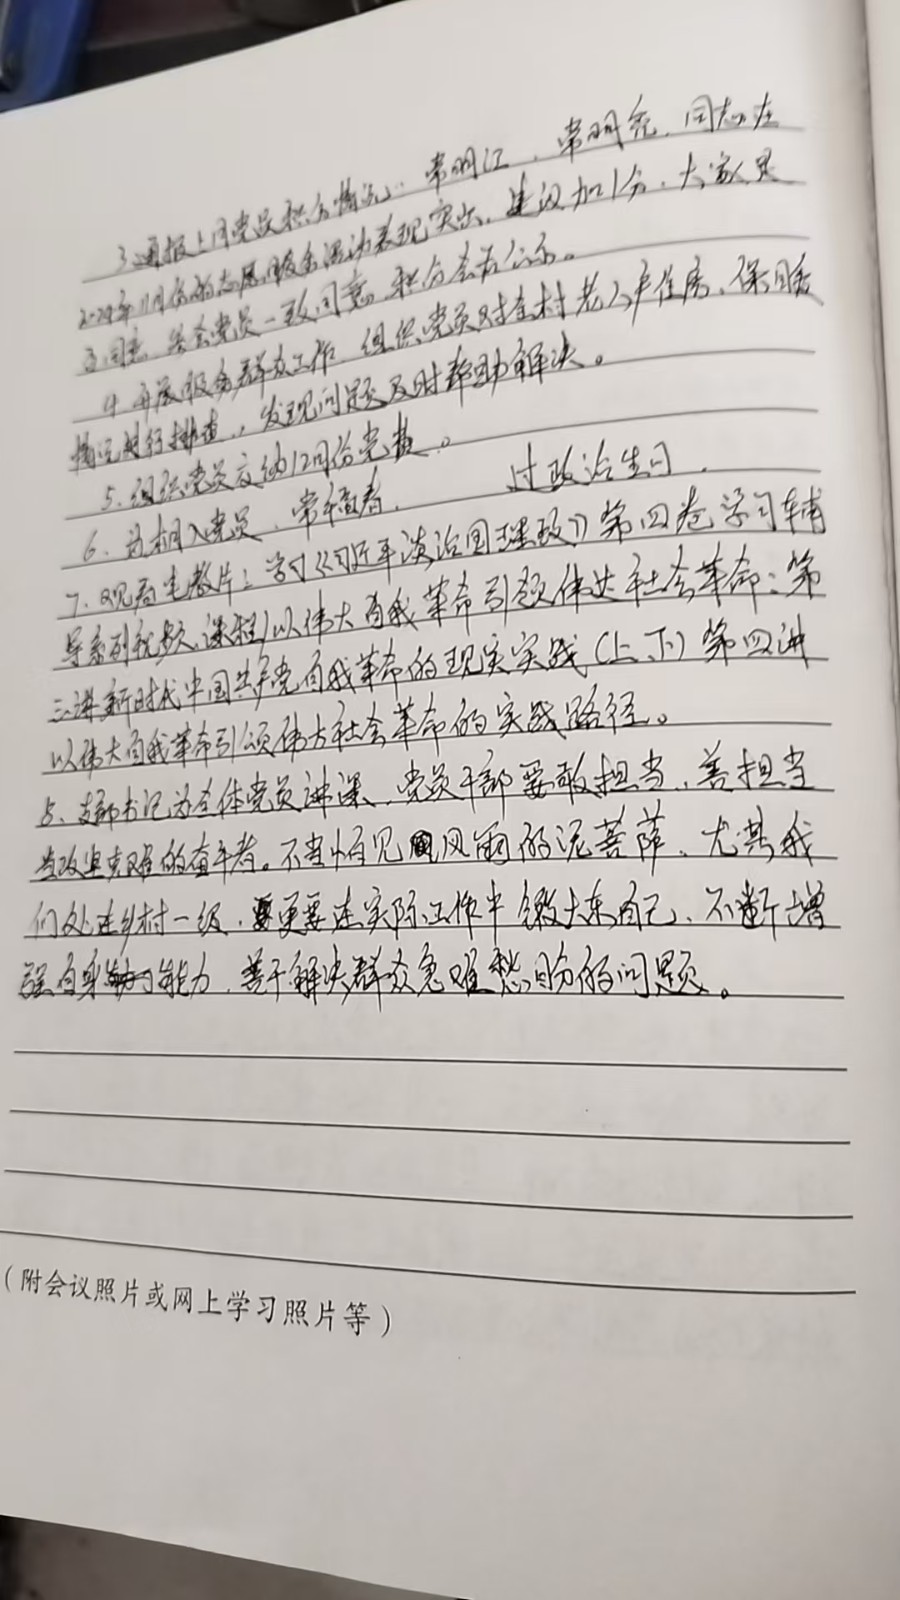 3.通报上月党员积分情况:常明江、常明亮、同志在
2024年11月份的志愿服务活动表现突出,建议加1分,大家是
否同意,与会党员一致同意,积分会后公示。
4.开展服务群众工作 组织党员对全村老人户住房、保暖
情况进行排查,发现问题及时帮助解决。
5.组织党员交纳12月份党费。
6.为相入党员、常福春、 过政治生日.
7.观看电教片:学习《习近平谈治国理政》第四卷学习辅
导系列视频课程)以伟大自我革命引领伟大社会革命:第
三讲新时代中国共产党自我革命的现实实践(上、下)第四讲
以伟大自我革命引领伟大社会革命的实践路径。
8、支部书记为全体党员讲课、党员干部要敢担当、善担当
当攻坚克难的奋斗者。不当怕见风雨的泥菩萨、尤其我
们处在乡村一级,更要在实际工作中锻炼自己、不断增
强自身能力,善于解决群众急难愁盼的问题。
(附会议照片或网上学习照片等)